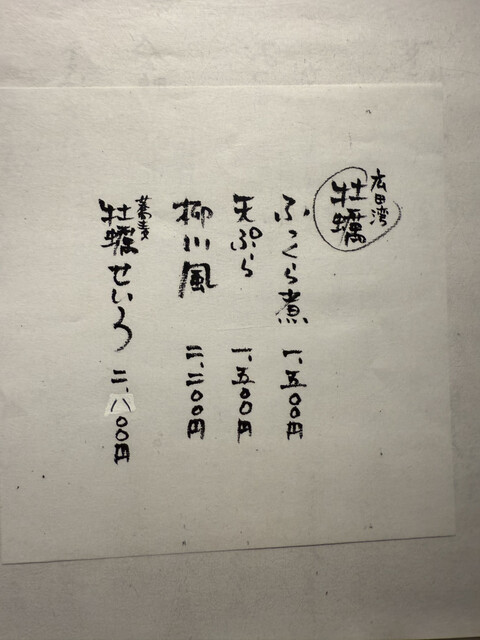 広田湾
牡蠣
ふっくら煮 一、五〇〇円
天ぷら 一、五〇〇円
柳川風 二、二〇〇円
蕎麦
牡蠣せいろ 二、八〇〇円